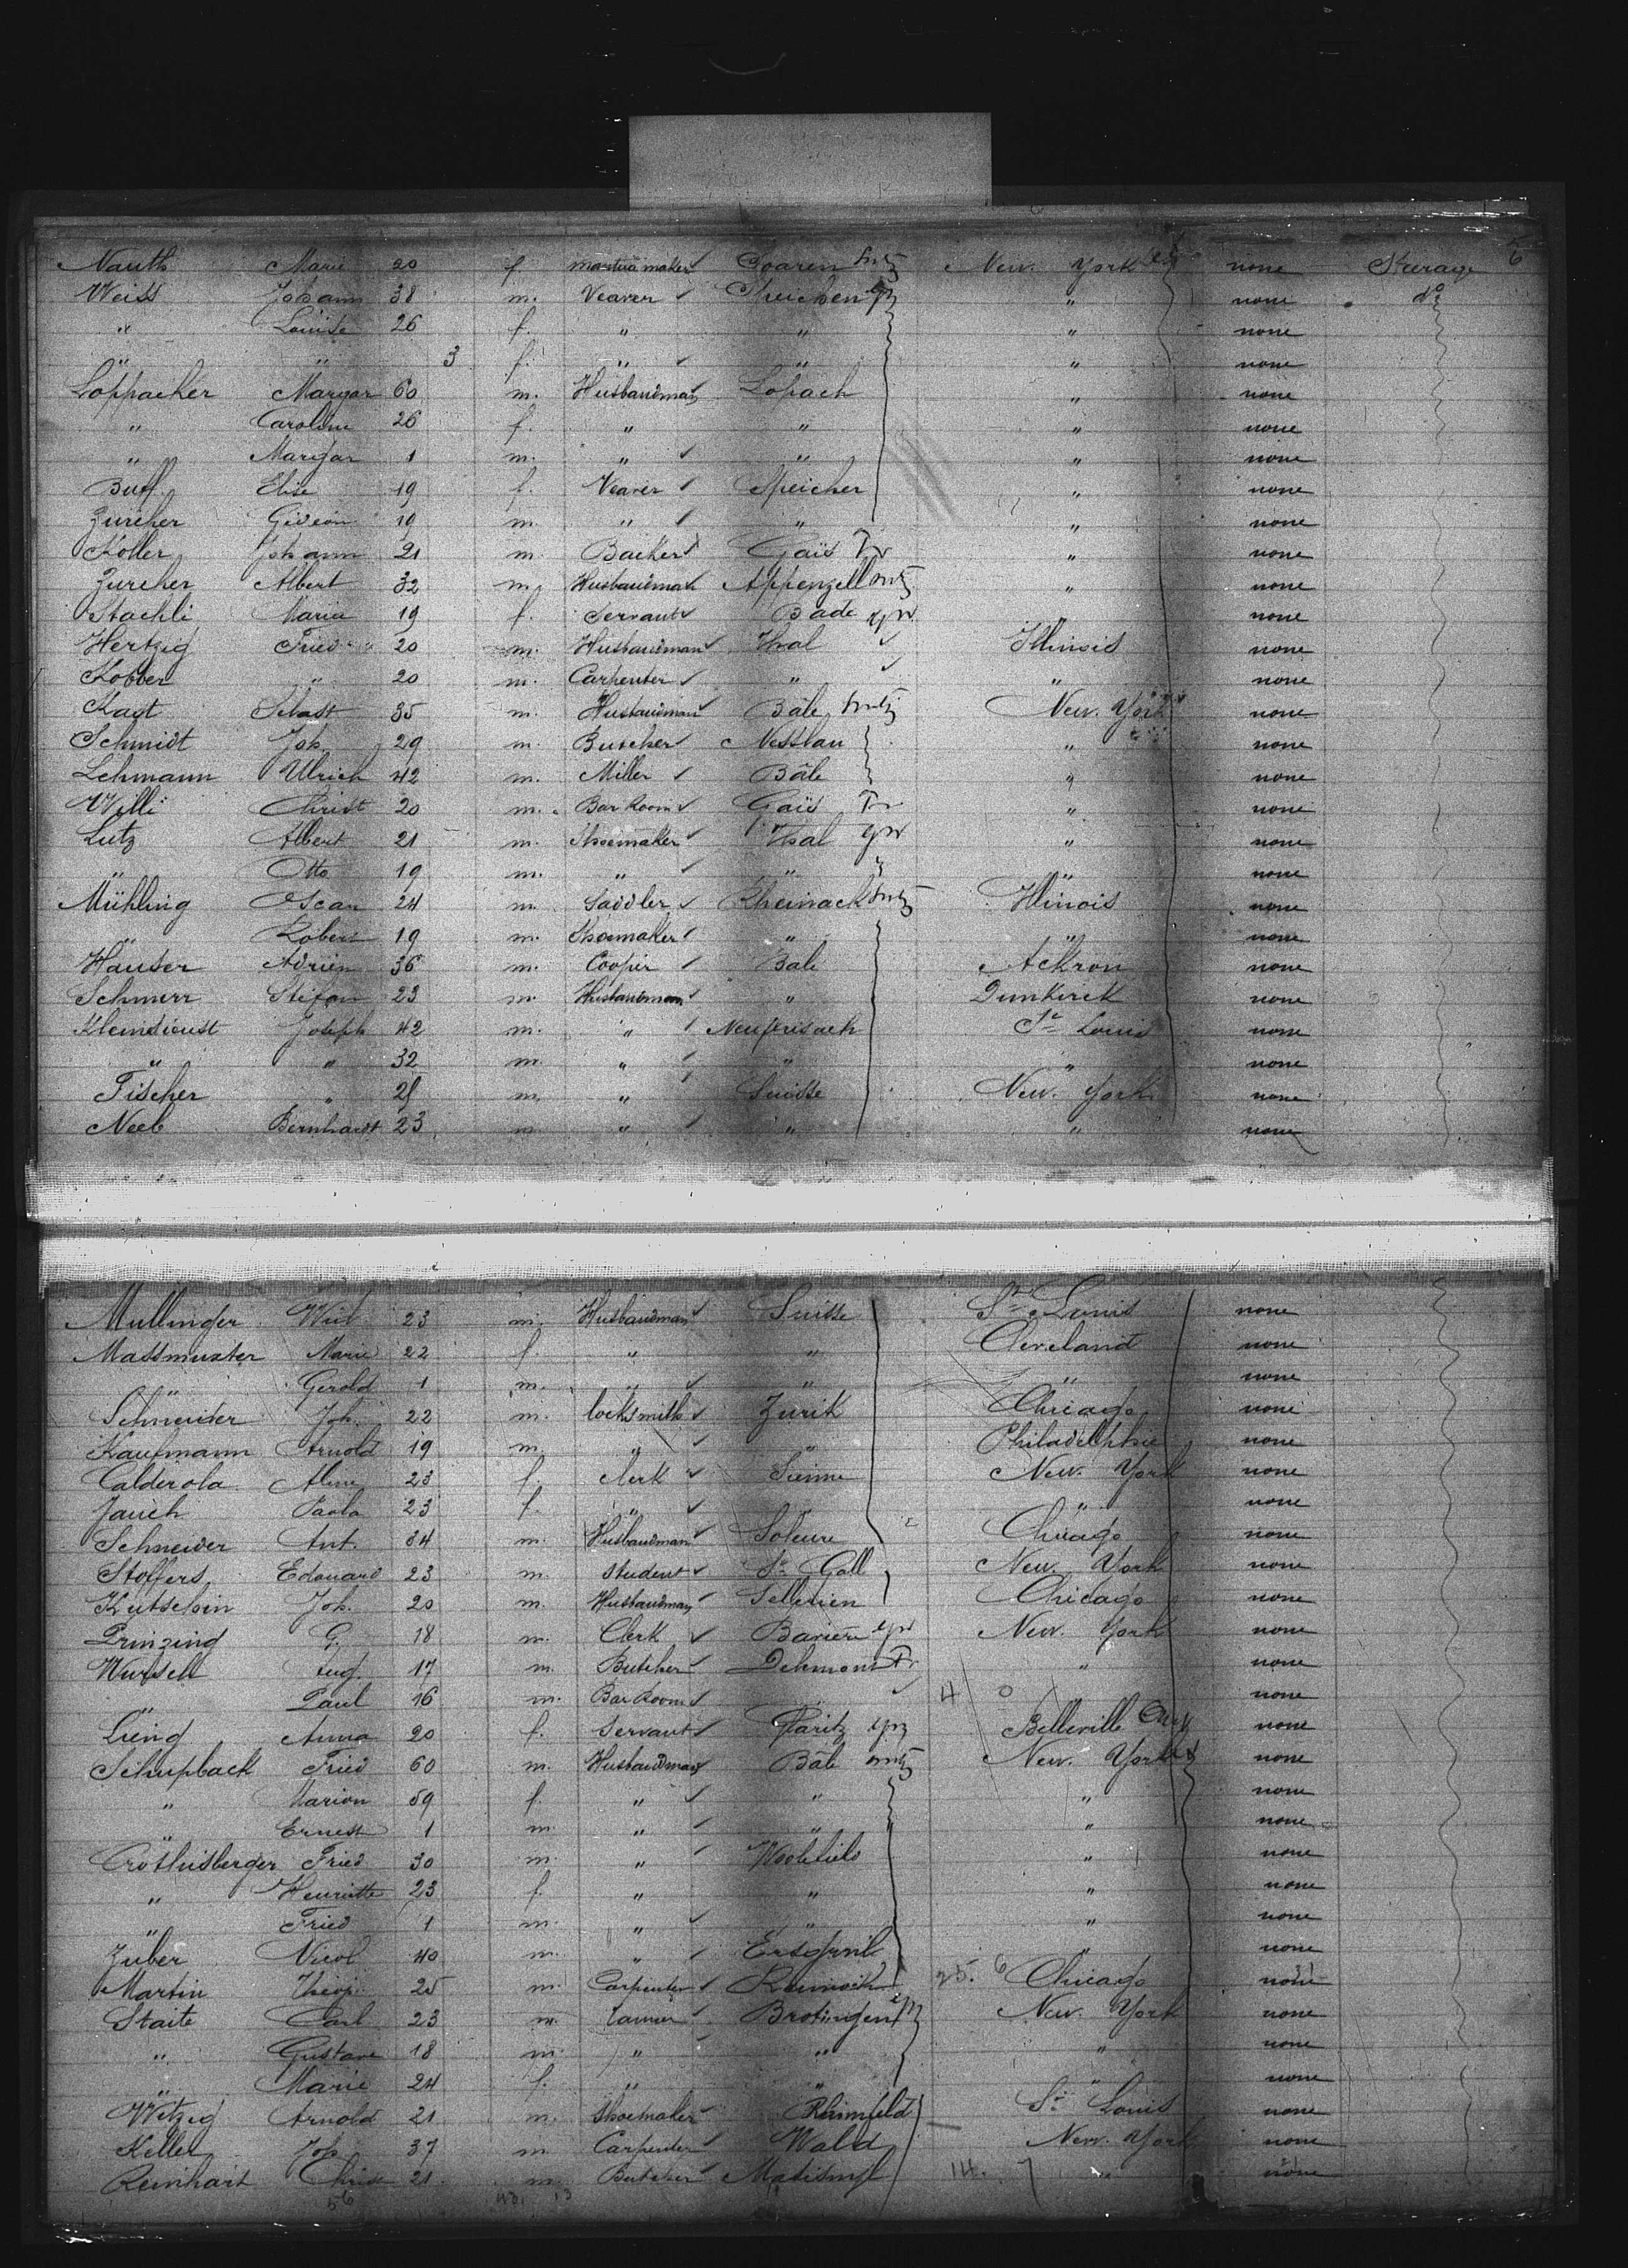 Nauth Marie 20 f. mantua maker New. York none Steerage 6
Weiss Johann 38 m. Veaver Speicher " none do
" Louise 26 f. " " " none
" " 3 f. " " " none
Loppacher Margar 60 m. Husbandman Lopach " none
" Caroline 26 f. " " " none
" Margar 1 m. " " " none
Buff Elise 19 f. Veaver Speicher " none
Zurcher Gideon 19 m. " " " none
Koller Johann 21 m. Backer Gaïs Fr " none
Zurcher Albert 32 m. Husbandman Appenzell " none
Staehli Maria 19 f. Servant Bade " none
Hertzig Fried 20 m. Husbandman Thal Illinois none
Kobber " 20 m. Carpenter " " none
Kagt Sebast 35 m. Husbandman Bâle New. York none
Schmidt Joh. 29 m. Butcher Nesslau " none
Lehmann Ulrich 42 m. Miller Bâle " none
Willi Christ 20 m. Bar Room Gaïs Fr " none
Lutz Albert 21 m. Shoemaker Thal " none
" Otto 19 m. " " " none
Mühling Oscar 24 m. Saddler Rheinach Illinois none
" Robert 19 m. Shoemaker " " none
Hauser Adrien 36 m. Cooper Bale Ackron none
Schmerr Stefan 23 m. Husbandman " Dunkirck none
Kleindienst Joseph 42 m. " Neufrisach St Louis none
" " 32 m. " " " none
Fischer " 25 m. " Suisse New. York none
Neeb Bernhardt 23 m. " " " none
Mullinger 23 m. Husbandman Suisse St Louis none
Massmunster Marie 22 f. " " Cleveland none
" Gerold 1 m. " " " none
Schneider Joh. 22 m. locksmith Zurik Chicago none
Kaufmann Arnold 19 m. " " Philadelphie none
Calderola Aline 23 f. clerk New. York none
Jauch Paola 23 f. " " none
Schneider Ant. 34 m. Husbandman Soleure Chicago none
Stoffers Edouard 23 m. student St Gall New. York none
Kutschin Joh. 20 m. Husbandman Chicago none
Prinzing G. 18 m. Clerk Baviere New. York none
Wursell Aug. 17 m. Butcher Delmont Fr " none
" Paul 16 m. Bar Room " 4 0 none
Lieng Anna 20 f. Servant Belleville none
Schupback Fried 60 m. Husbandman Bâle New. York none
" Marion 59 f. " " " none
" Ernest 1 m. " " " none
Crothisberger Fried 30 m. " " none
" Henriette 23 f. " " " none
" Fried 1 m. " " " none
Zuber Nicol 40 m. " " none
Martin 25 m. Carpenter 25. 6 Chicago none
Staite Carl 23 m. Tanner Brotingen New. York none
" Gustave 18 m. " " " none
" Marie 24 f. " " " none
Witzig Arnold 21 m. Shoemaker Rheinfeld St Louis none
Keller Joh. 37 m. Carpenter Wald New. York none
Reinhart Christ 21 m. Butcher 14. " none
56 43. 13